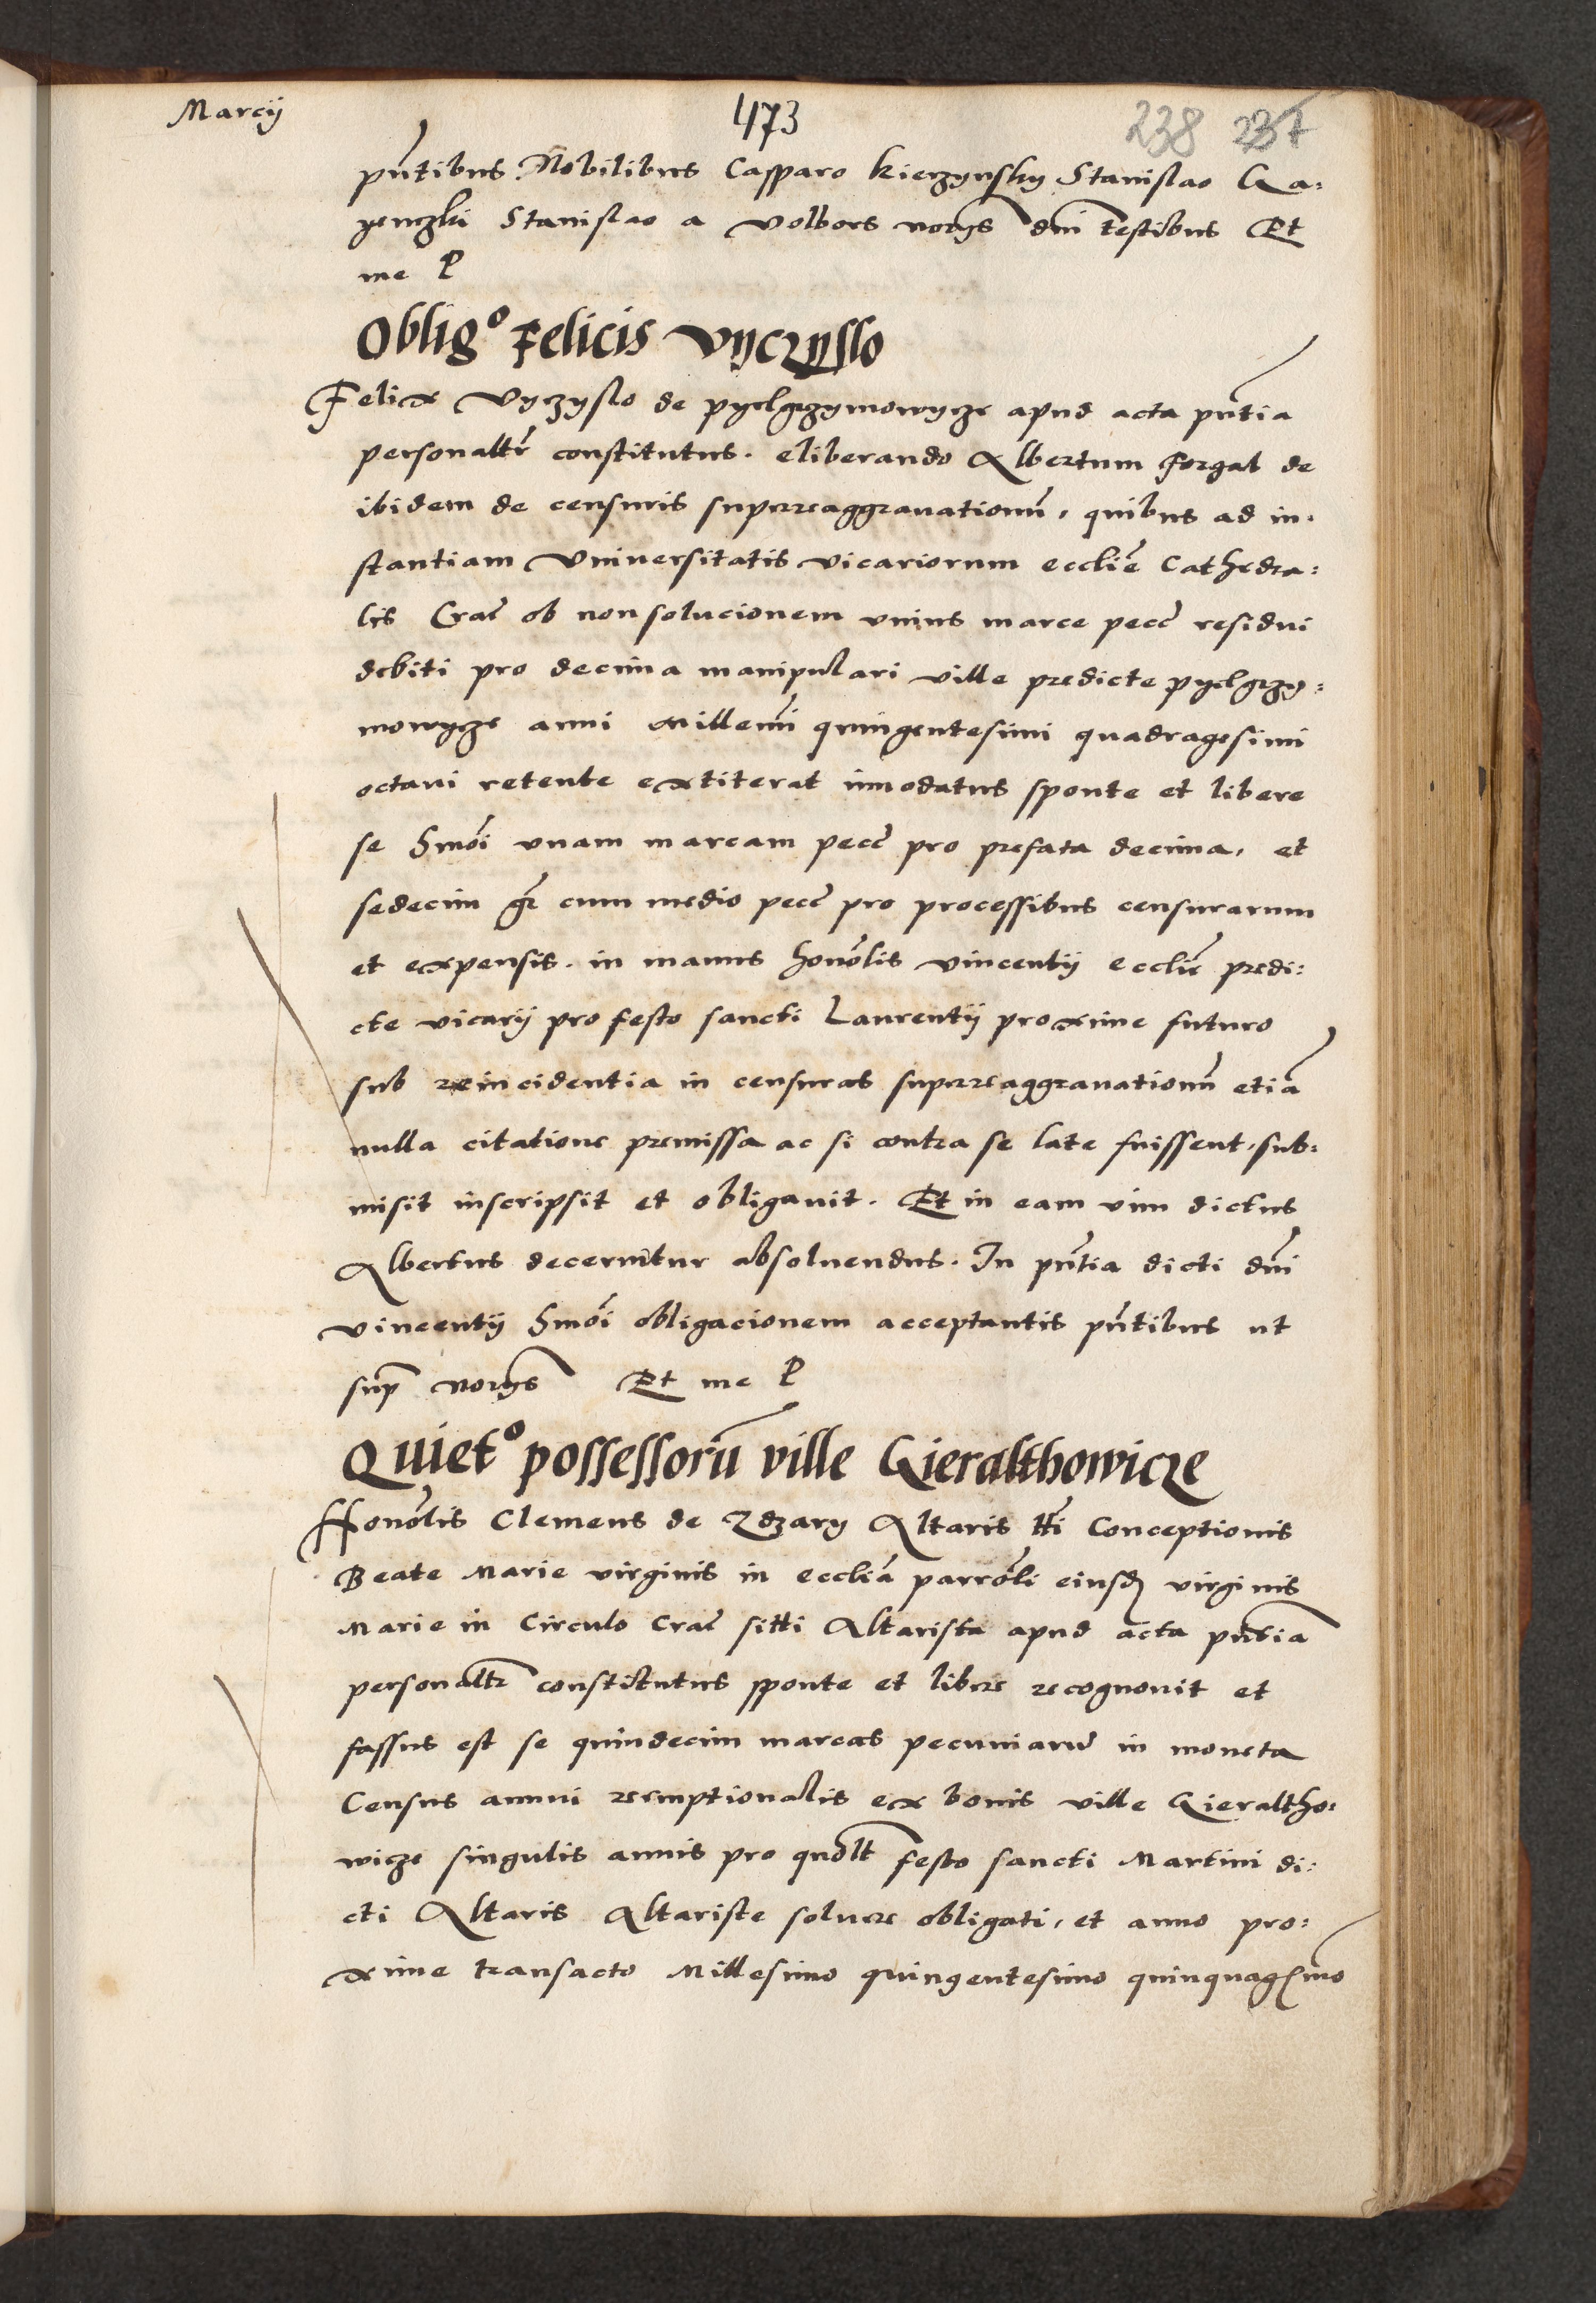 Marcij
473
238 237
pñtibus Nobilibus Casparo kierzynsky Stanislao Ga:
yenczki Stanislao a Volbors notrijs dñi testibus Et
me P
Obligº Felicis Vyczyslo
Felix Vyczyslo de pyelgrzymowycze apud acta pñtia
personaltr̃ constitutus. eliberando Albertum Forgal de
ibidem de censuris superreaggrauationũ, quibus ad in:
stantiam Vniuersitatis vicariorum ecclie̅ Cathedra:
lis Crac̃ ob non solucionem vnius marce pecc̃ residui
debiti pro decima manipulari ville predicte pyelgrzy:
mowycze anni Millemi̅ quingentesimi quadragesimi
octaui retente extiterat innodatus sponte et libere
se hmo̅i vnam marcam pecc̃ pro prefata decima, et
sedecim gr̃ cum medio pecc̃ pro processibus censurarum
et expensis. in manus hono̅lis vincentij ecclie̅ predi:
cte vicarij pro festo sancti Laurentij proxime futuro
sub reincidentia in censuras superreaggrauationũ etiã
nulla citatione premissa ac si contra se late fuissent, sub:
misit inscripsit et obligauit. Et in eam vim dictus
Albertus decernitur absoluendus. In pñtia dicti dñi
vincentij hmo̅i obligacionem acceptantis pñtibus ut
sup̃ notrijs Et me P
Quietº possessorũ ville Gieralthowicze
Hono̅lis Clemens de Zdzary Altaris tti̅ Conceptionis
Beate Marie virginis in ecclia̅ parro̅li eiusd̃ virginis
Marie in Circulo Crac̃ sitti Altarista apud acta pñtia
personaltr̃ constitutus sponte et libere recognouit et
fassus est se quindecim marcas pecuniarũ in moneta
Census annui reemptionalis ex bonis ville Gieraltho:
wicze singulis annis pro quolt̃ festo sancti Martini di:
cti Altaris Altariste soluere obligati, et anno pro:
xime transacto Millesimo quingentesimo quinquagẽmo